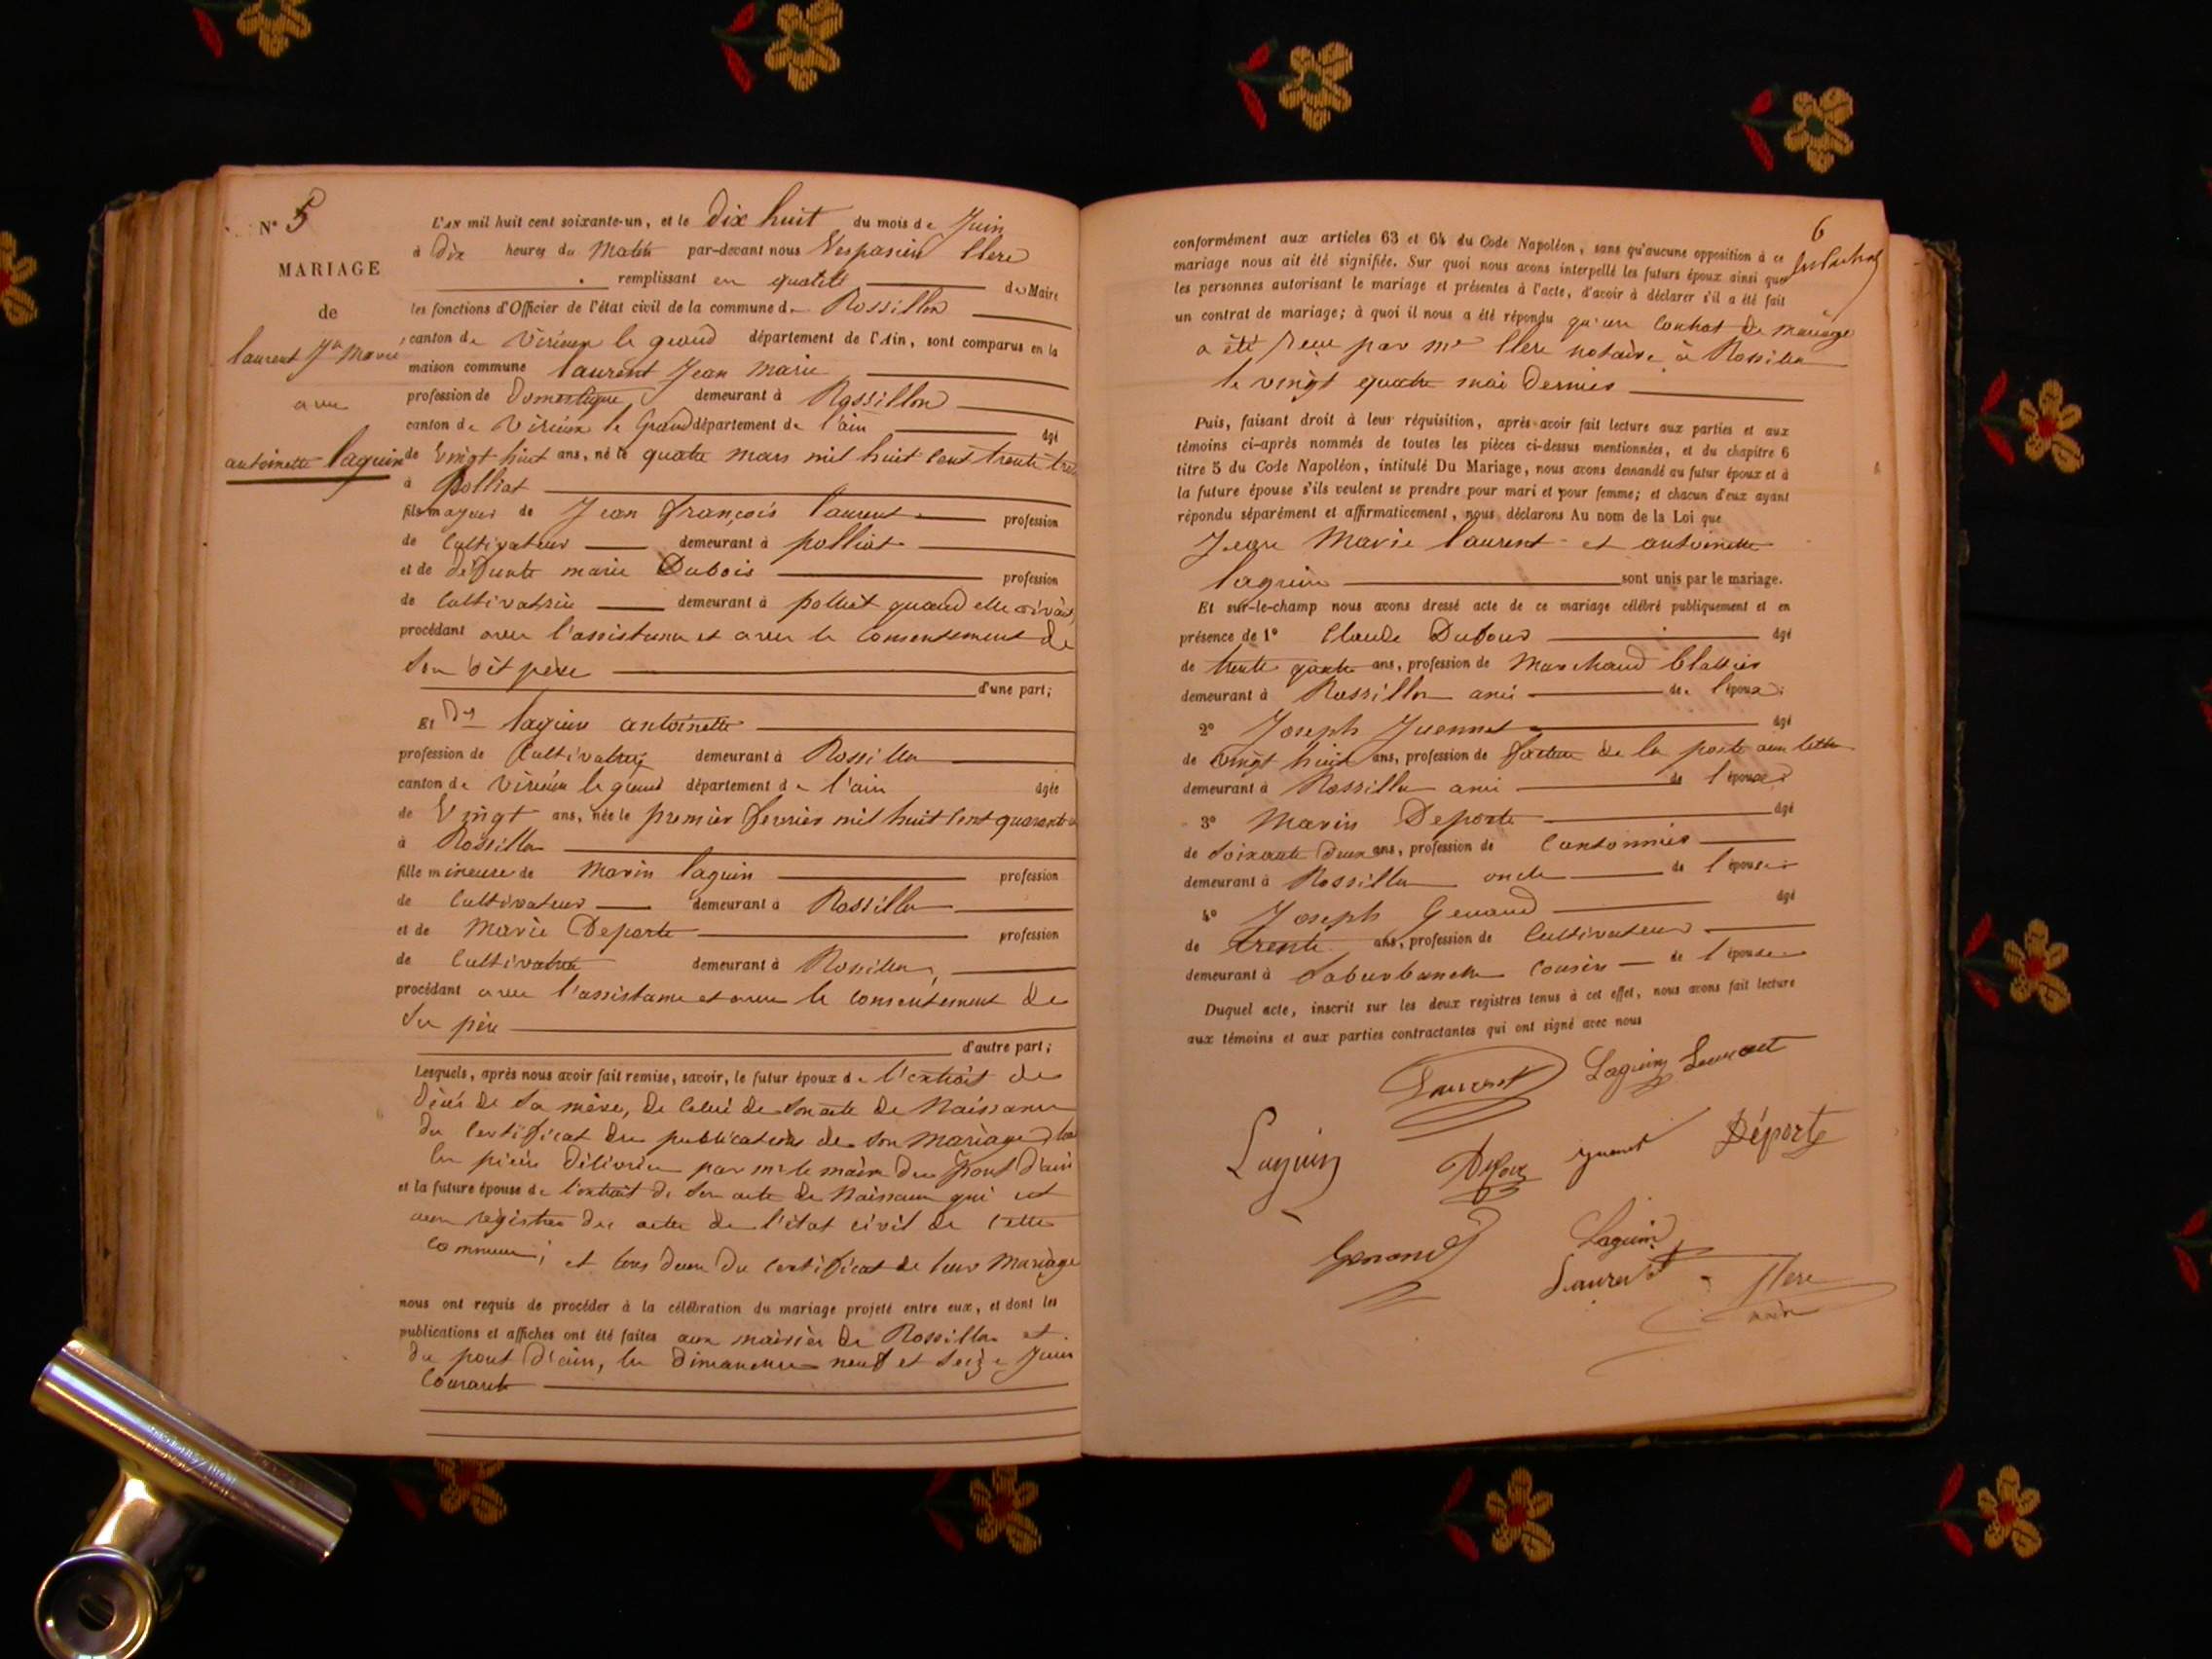 N° 5
MARIAGE
de
laurent Jn Marie
avec
antoinette laguin
L'AN mil huit cent soixante-un, et le dix huit du mois de Juin
à dix heures du Matin par-devant nous Vespasien Clerc
remplissant en qualité de Maire
les fonctions d'Officier de l'état civil de la commune de Rossillon
canton de Virieux le grand département de l'Ain, sont comparus en la
maison commune laurent Jean Marie
profession de Domestique demeurant à Rossillon
canton de Virieux le Grand département de l'ain âgé
de Vingt huit ans, né le quatre mars mil huit cent trente trois
à Polliat
fils majeur de Jean françois laurent profession
de Cultivateur demeurant à polliat
et de défunte marie Dubois profession
de Cultivatrice demeurant à polliat quand elle vivait,
procédant avec l'assistance et avec le Consentement de
Son dit père
d'une part;
Et Dlle laguin antoinette
profession de Cultivatrice demeurant à Rossillon
canton de Virieux le grand département de l'ain âgée
de Vingt ans, née le premier fevrier mil huit cent quarante un
à Rossillon
fille mineure de Marin laguin profession
de Cultivateur demeurant à Rossillon
et de Marie Deporte profession
de Cultivatrice demeurant à Rossillon,
procédant avec l'assistance et avec le consentement de
Son père
d'autre part;
Lesquels, après nous avoir fait remise, savoir, le futur époux de l'extrait de
décès de Sa mère, de Celui de Son acte de Naissance
du Certificat des publications de Son Mariage, tous
les pièces délivrées par mr le maire du pont d'ain
et la future épouse de l'extrait de Son acte de Naissance qui est
aux registres des actes de l'état civil de Cette
Commune; et tous deux du Certificat de leur Mariage
nous ont requis de procéder à la célébration du mariage projeté entre eux, et dont les
publications et affiches ont été faites aux mairies de Rossillon et
du pont d'ain, les dimanches neuf et Seize Juin
Courant
6
conformément aux articles 63 et 64 du Code Napoléon, sans qu'aucune opposition à ce
mariage nous ait été signifiée. Sur quoi nous avons interpellé les futurs époux ainsi que
les personnes autorisant le mariage et présentes à l'acte, d'avoir à déclarer s'il a été fait
un contrat de mariage; à quoi il nous a été répondu qu'un Contrat de mariage
a été reçu par me Clerc notaire à Rossillon
le vingt quatre mai Dernier
Puis, faisant droit à leur réquisition, après avoir fait lecture aux parties et aux
témoins ci-après nommés de toutes les pièces ci-dessus mentionnées, et du chapitre 6
titre 5 du Code Napoléon, intitulé Du Mariage, nous avons demandé au futur époux et à
la future épouse s'ils veulent se prendre pour mari et pour femme; et chacun d'eux ayant
répondu séparément et affirmativement, nous déclarons Au nom de la Loi que
Jean Marie laurent et antoinette
laguin sont unis par le mariage.
Et sur-le-champ nous avons dressé acte de ce mariage célébré publiquement et en
présence de 1° Claude Dufour âgé
de trente quatre ans, profession de Marchand
demeurant à Rossillon ami de l'époux;
2° Joseph Juennet âgé
de Vingt huit ans, profession de facteur de la poste aux lettres
demeurant à Rossillon ami de l'époux
3° Marin Deporte âgé
de Soixante deux ans, profession de Cantonnier
demeurant à Rossillon oncle de l'épouse
4° Joseph Genaud âgé
de trente ans, profession de Cultivateur
demeurant à cousin de l'épouse
Duquel acte, inscrit sur les deux registres tenus à cet effet, nous avons fait lecture
aux témoins et aux parties contractantes qui ont signé avec nous
Laurent Laguin Laurent
Laguin Déporte
Laguin
Laurent Clerc
maire